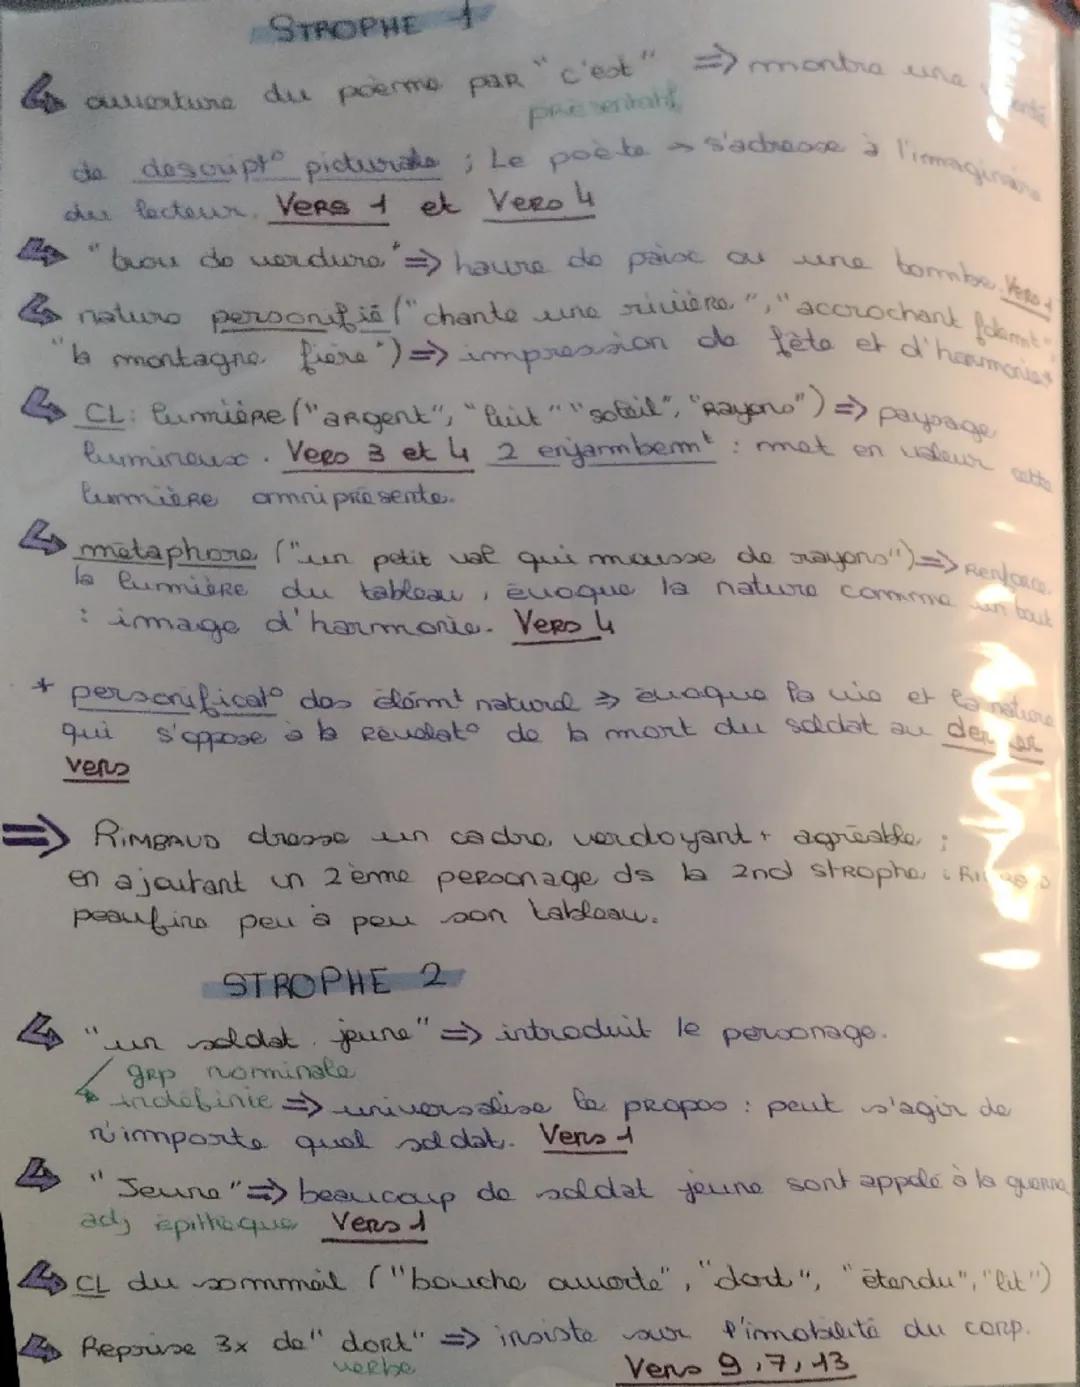 STROPHE 1
↳ ouverture du poème par "c'est" => montre une
présentatif
de descript° picturale ; Le poète → s'adresse à l'imaginaire
du lecteur. Vers 1 et Vers 4
↳ "trou de verdure" => havre de paix ou une tombe. Vers 1
↳ nature personifié ("chante une rivière", "accrochant folemnt",
"la montagne fière") => impression de fête et d'harmonie*
↳ CL: lumière ("argent", "luit" "soleil", "rayons") => paysage
lumineux. Vers 3 et 4 2 enjambemt : met en valeur cette
lumière omniprésente.
↳ métaphore ("un petit val qui mousse de rayons") => Renforce
la lumière du tableau, évoque la nature comme un tout
: image d'harmonie. Vers 4
* personificat° des élémt naturel => évoque la vie et la nature
qui s'oppose à la révélat° de la mort du soldat au dernier
vers
=> RIMBAUD dresse un cadre verdoyant + agréable ;
en ajoutant un 2ème personage ds la 2nd strophe :
peaufine peu à peu son tableau.
STROPHE 2
↳ "un soldat jeune" => introduit le personage.
grp nominale
indéfinie => universalise le propos : peut s'agir de
n'importe quel soldat. Vers 1
↳ "Jeune" => beaucoup de soldat jeune sont appelé à la guerre
adj épithèque Vers 1
↳ CL du sommeil ("bouche ouverte", "dort", "étendu", "lit")
↳ Reprise 3x de "dort" => insiste sur l'imobilité du corp.
verbe Vers 9, 7, 13